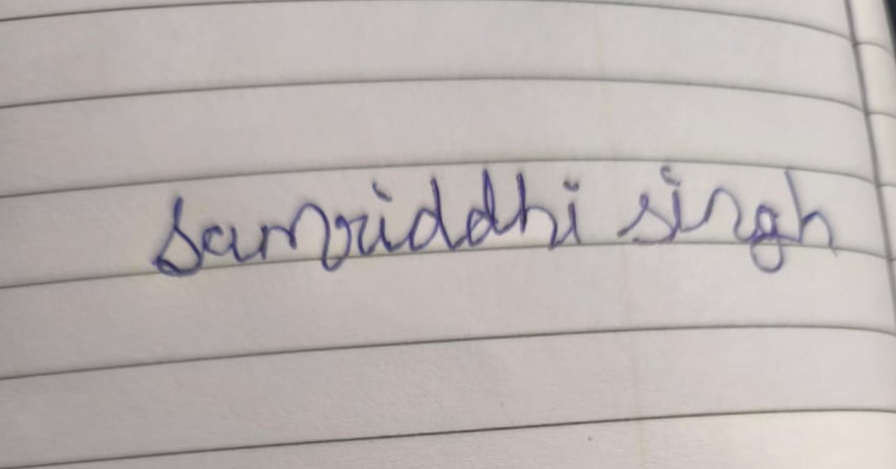 Samriddhi singh